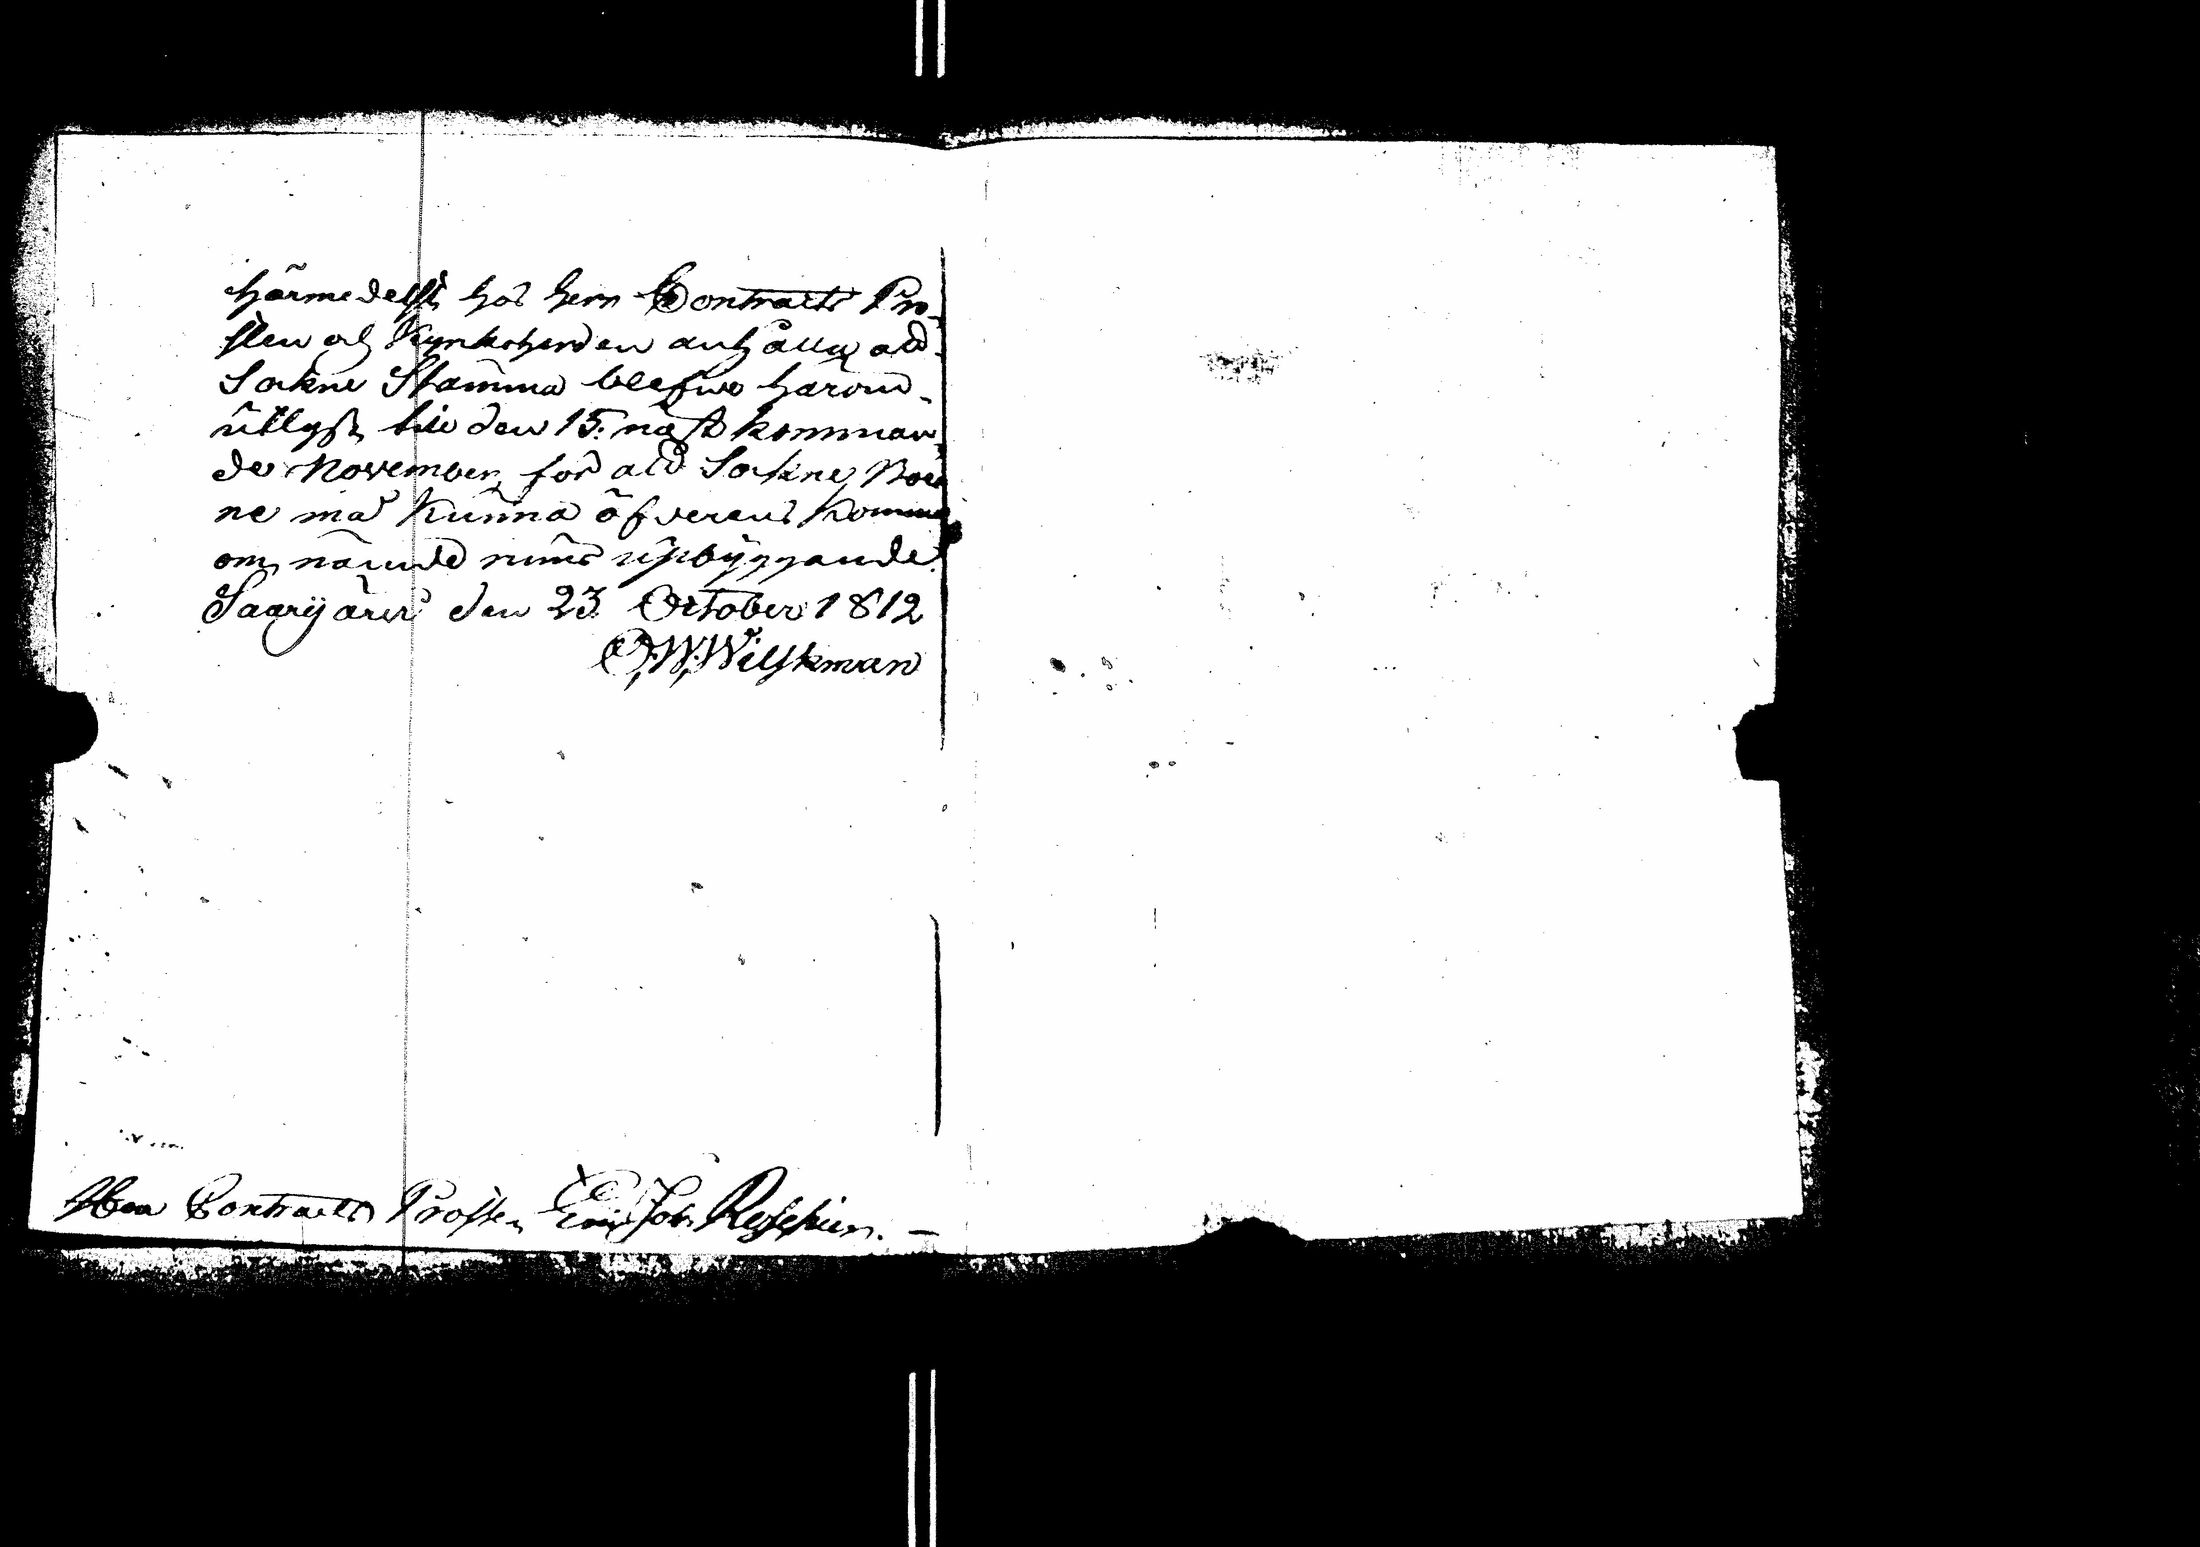 härmedelst hos herr Contracts Pro-
sten och Kyrkoherden anhålla att
Sockne Stämma blefwe härom
utlyst till den 15. näst komman-
de November, för att Sockne Boer-
ne må kunna öfverens komma
om nämnde rums upbyggande.
Saarijärvi den 23. October 1812
O. W. Wilskman
Herr Contracts Prosten Eric Joh.